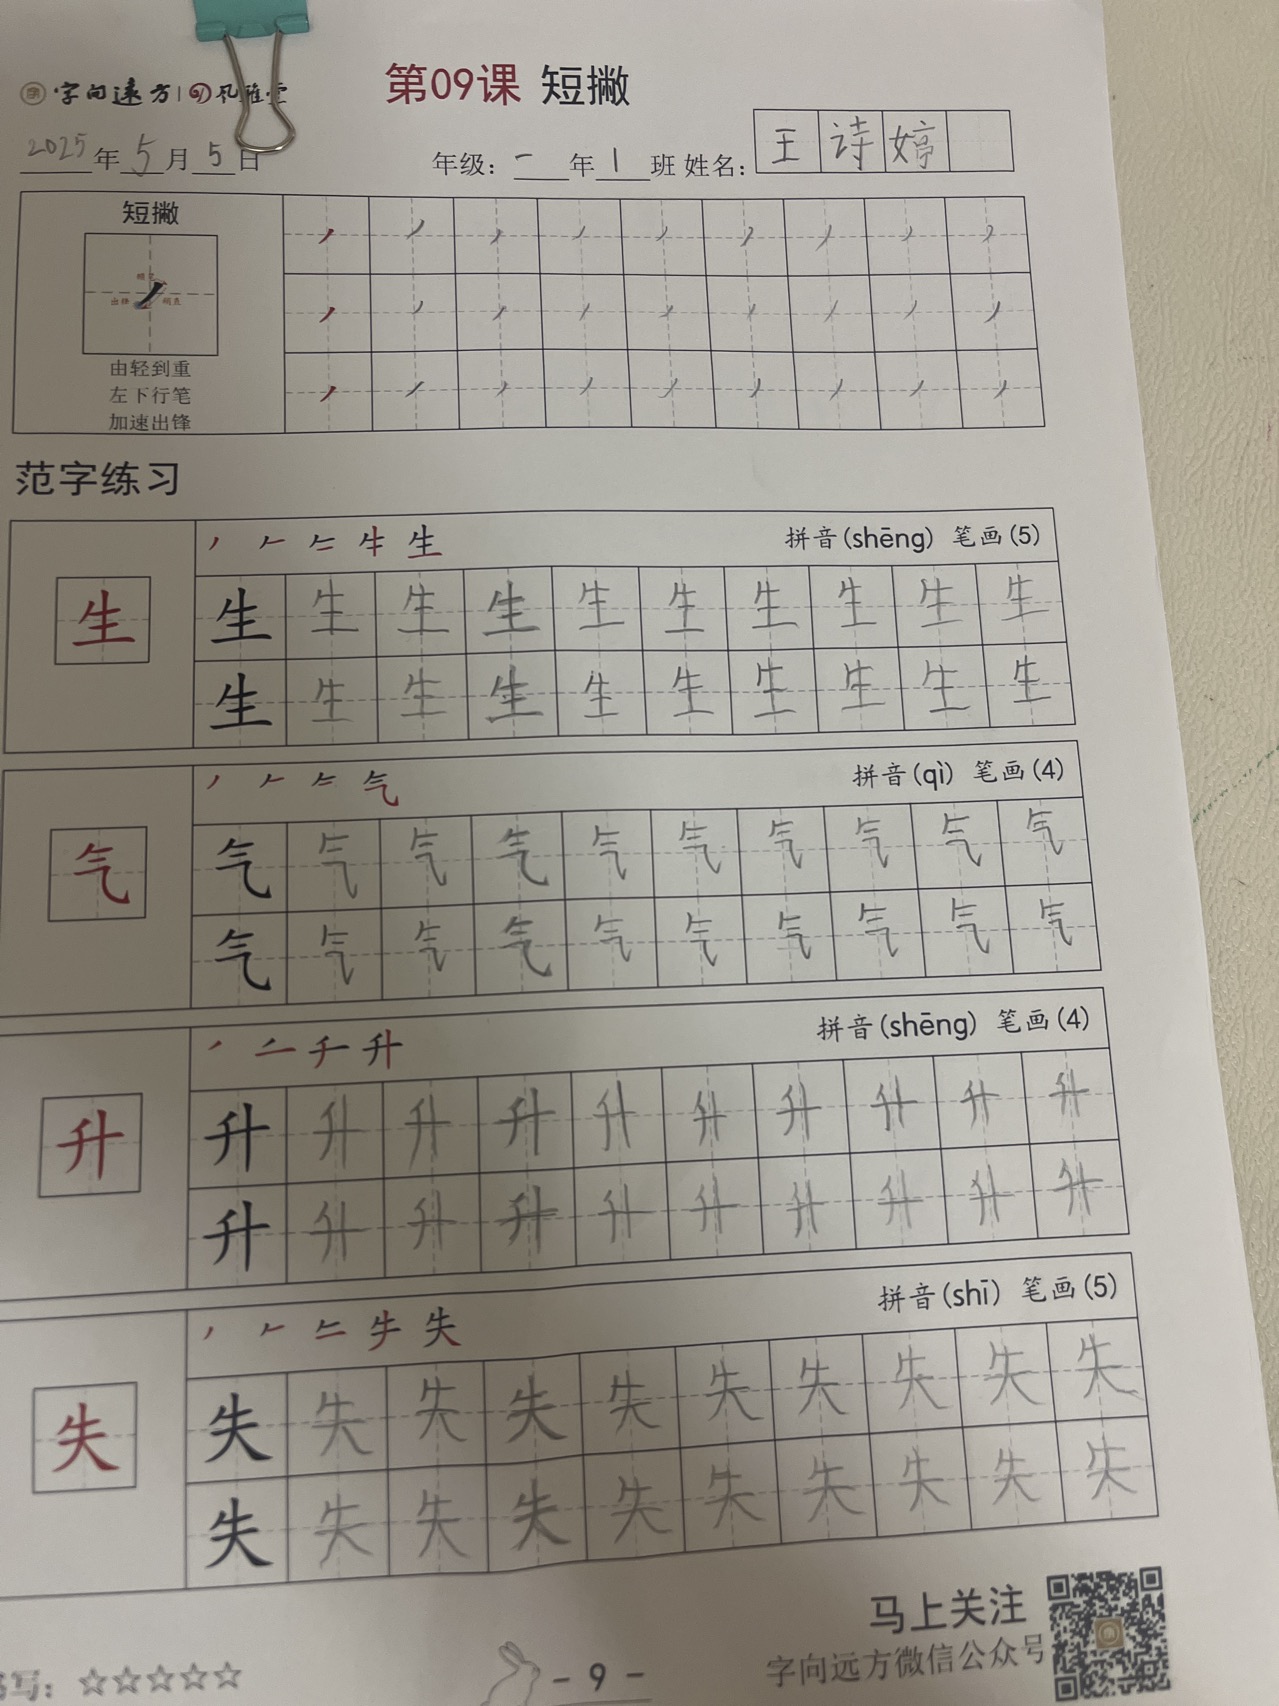 字向远方 | 孔雅堂
第09课 短撇
2025年5月5日 年级：一年1班 姓名：王诗婷
短撇
由轻到重
左下行笔
加速出锋
范字练习
拼音(shēng) 笔画(5)
生 生 生 生 生 生 生 生 生 生 生
生 生 生 生 生 生 生 生 生 生
拼音(qì) 笔画(4)
气 气 气 气 气 气 气 气 气 气 气
气 气 气 气 气 气 气 气 气 气
拼音(shēng) 笔画(4)
升 升 升 升 升 升 升 升 升 升 升
升 升 升 升 升 升 升 升 升 升
拼音(shī) 笔画(5)
失 失 失 失 失 失 失 失 失 失 失
失 失 失 失 失 失 失 失 失 失
马上关注
字向远方微信公众号
写：☆☆☆☆☆
- 9 -